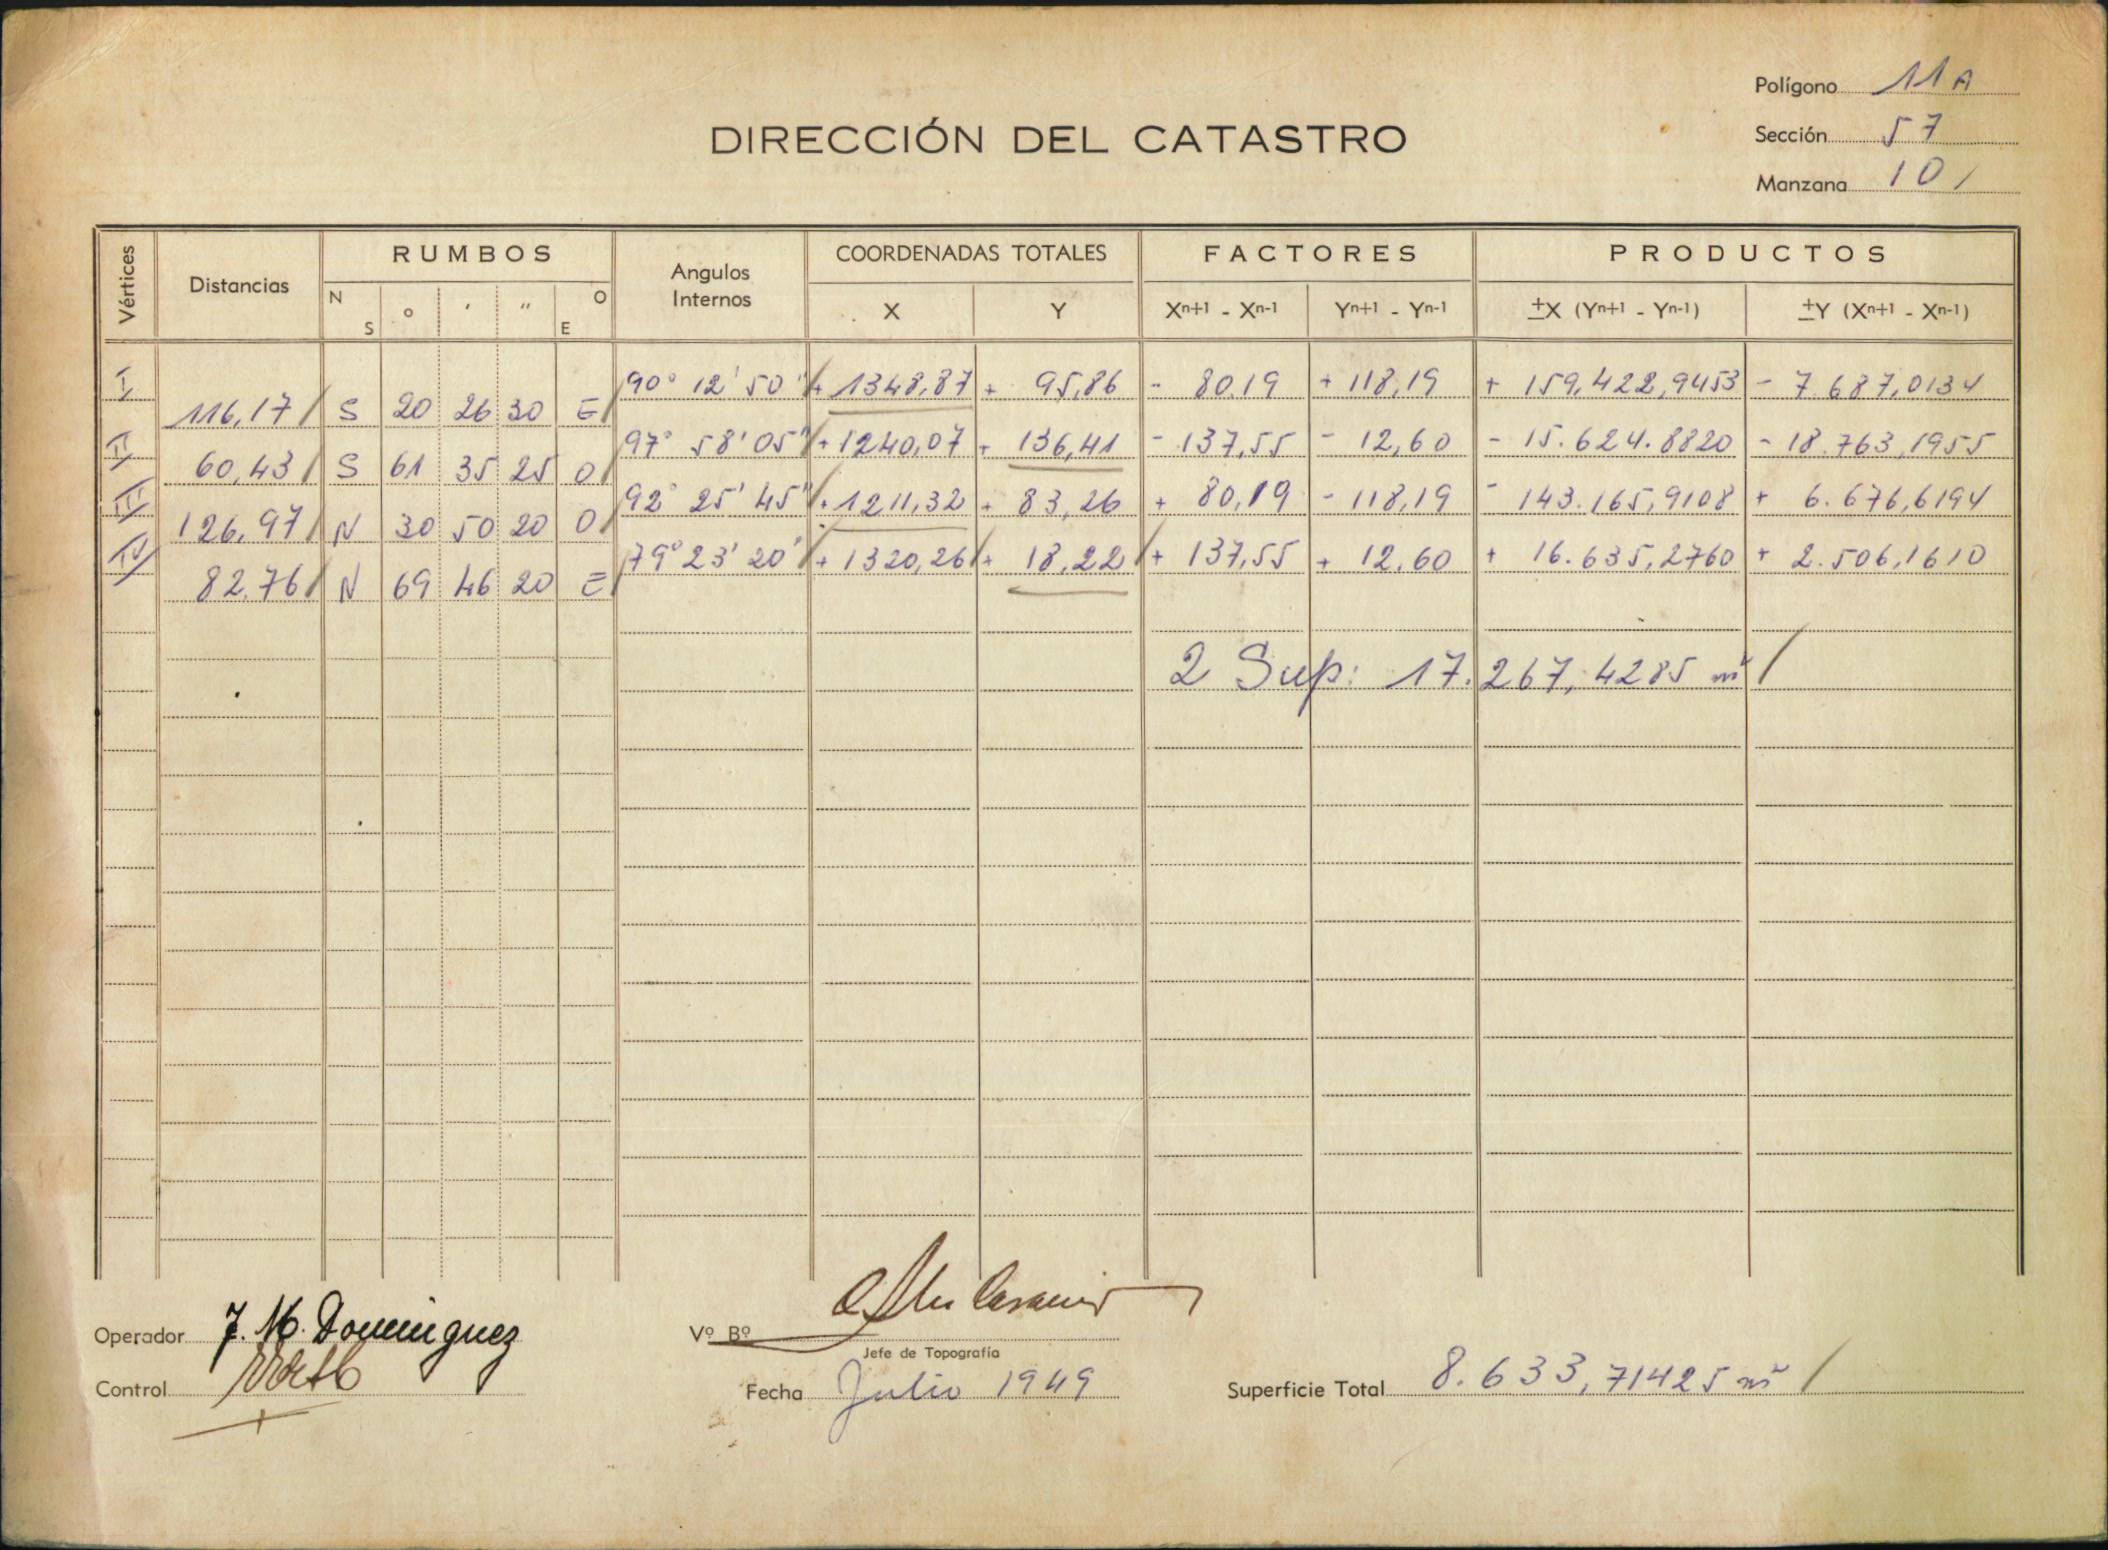 Polígono 11A
DIRECCIÓN DEL CATASTRO
Sección 57
Manzana 10 /
Vértices Distancias RUMBOS Angulos Internos COORDENADAS TOTALES FACTORES PRODUCTOS
N S ° ' " O E X Y Xn+1 - Xn-1 Yn+1 - Yn-1 ±X (Yn+1 - Yn-1) ±Y (Xn+1 - Xn-1)
I 90° 12' 50" + 1348,87 + 95,86 - 80.19 + 118,19 + 159,422,9453 - 7.687,0134
116,17 / S 20 26 30 E /
II 97° 58' 05" + 1240,07 + 136,41 - 137,55 - 12,60 - 15.624.8820 - 18.763,1955
60,43 / S 61 35 25 O /
III 92° 25' 45" + 1211,32 + 83,26 + 80,19 - 118,19 - 143.165,9108 + 6.676,6194
126,97 / N 30 50 20 O /
IV 79° 23' 20' + 1320,26 + 18,22 / + 137,55 + 12,60 + 16.635,2760 + 2.506,1610
82.76 / N 69 46 20 E
2 Sup: 17.267,4285 m² /
Operador J. M. Dominguez
Vº Bº
Jefe de Topografía
Control
Fecha Julio 1949
Superficie Total 8.633,71425 m² /